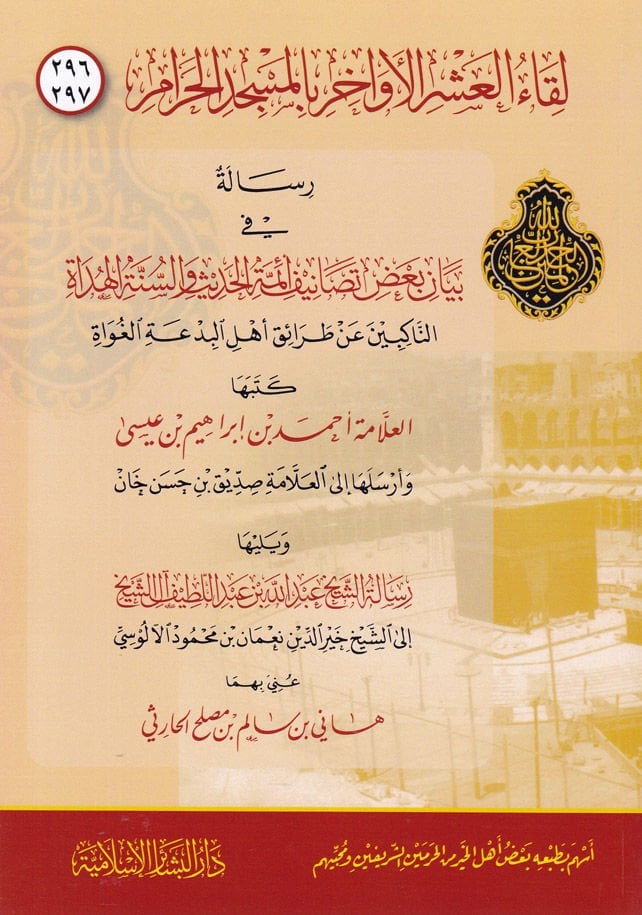 لِقَاءُ العَشْرِ الأَوَاخِرِ بِالمَسْجِدِ الحَرَامِ
٢٩٦
٢٩٧
رِسَالَةٌ
في
بَيَانِ بَعْضِ تَصَانِيفِ أَئِمَّةِ الحَدِيثِ وَالسُّنَّةِ الهُدَاةِ
النَّاكِبِينَ عَنْ طَرَائِقِ أَهْلِ البِدْعَةِ الغُوَاةِ
كَتَبَهَا
العلَّامة أحمد بن إبراهيم بن عيسى
وَأَرْسَلَهَا إِلَى العَلَّامَةِ صِدِّيق بْنِ حَسَن خَانْ
وَيَلِيْهَا
رِسَالَةُ الشَّيْخِ عَبْدِ اللَّه بْنِ عَبْدِ اللَّطِيفِ آلِ الشَّيْخِ
إلى الشَّيْخِ خَيْرِ الدِّين نُعْمَان بن مَحْمُود الآلُوسِيِّ
عُنِيَ بِهِمَا
هاني بن سالم بن مصلح الحارثي
أَسْهَمَ بِطَبْعِهِ بَعْضُ أَهْلِ الخَيْرِ مِنَ الحَرَمَيْنِ الشَّرِيفَيْنِ وَمُحِبِّيهِم
دَارُ البَشَائِرِ الإِسْلَامِيَّةِ